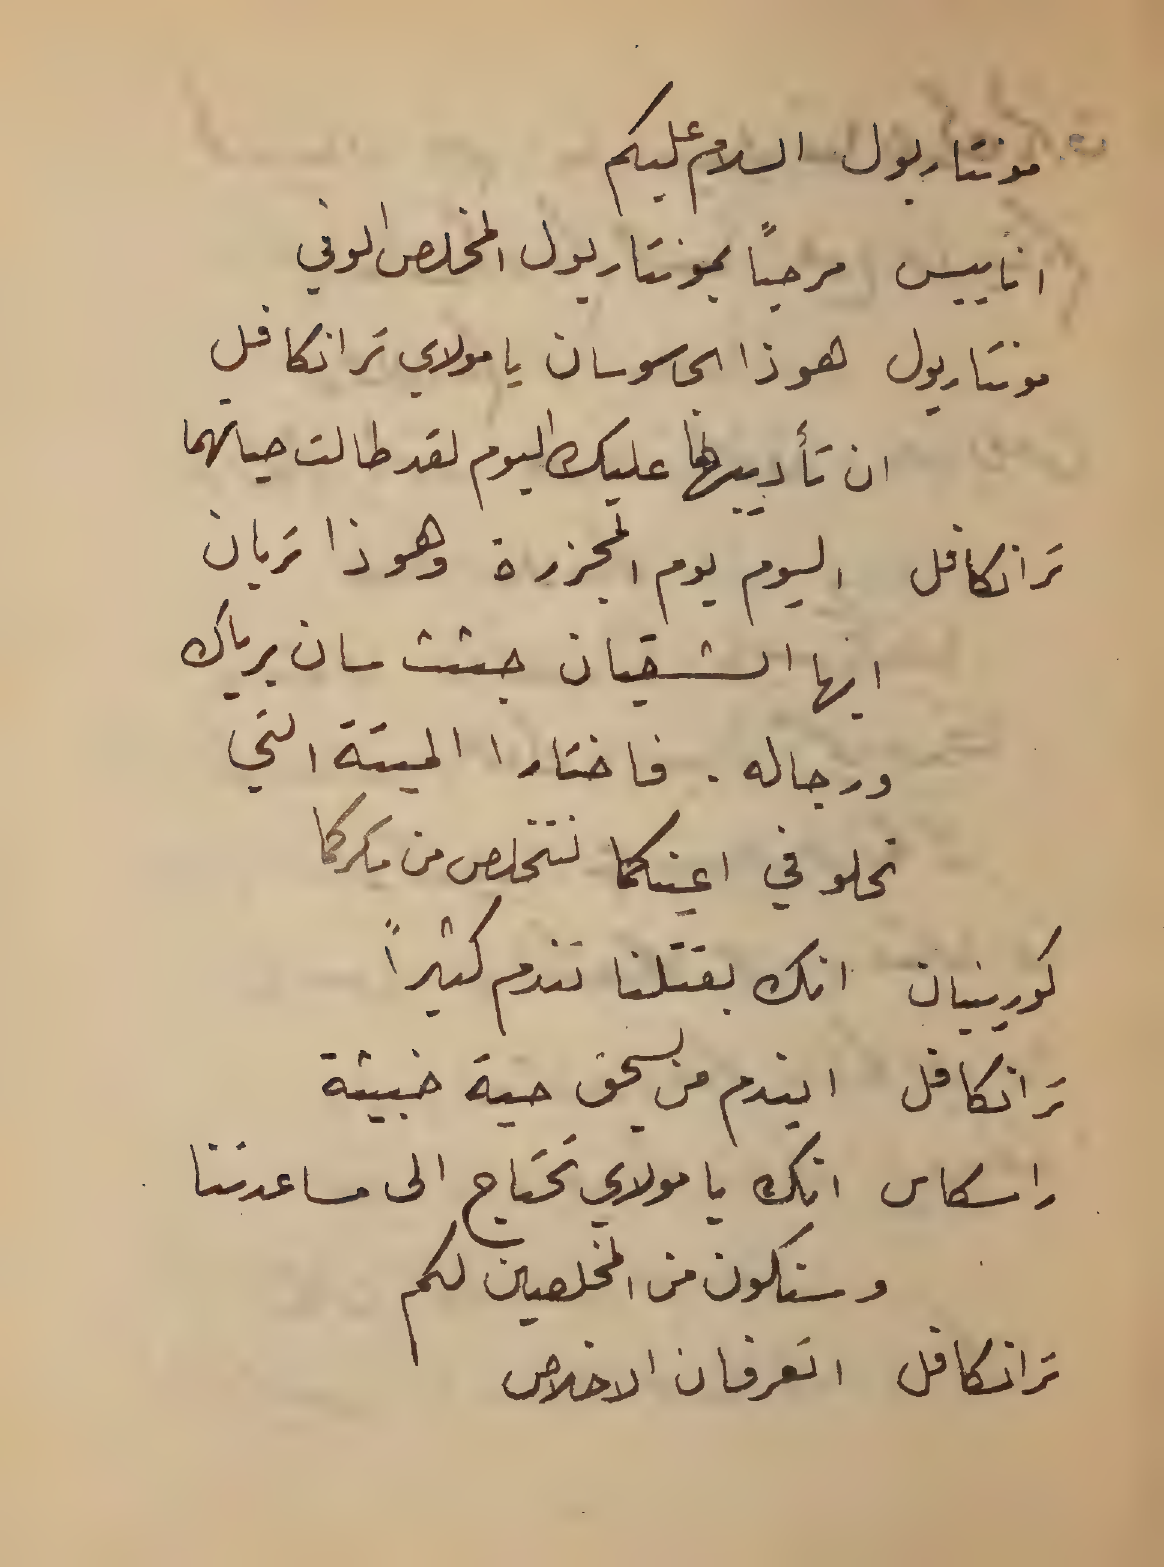 مونتاريول السلام عليكم
انابيس مرحباً بمونتاريول المخلص الوفي
مونتاريول هوذا الجاسوسان يا مولاي ترانكافل
ان تأديبهما عليك اليوم لقد طالت حياتهما
ترانكافل اليوم يوم المجزرة وهوذا تريان
ايها الشقيان جثث سان برياك
ورجاله . فاختارا الميتة التي
تحلو في اعينكما نتخلص من مكركما
كورينيان انك بقتلنا تندم كثيراً
ترانكافل ايندم من يسحق حية خبيثة
راسكاس انك يا مولاي تحتاج الى مساعدتنا
وسنكون من المخلصين لكم
ترانكافل اتعرفان الاخلاص